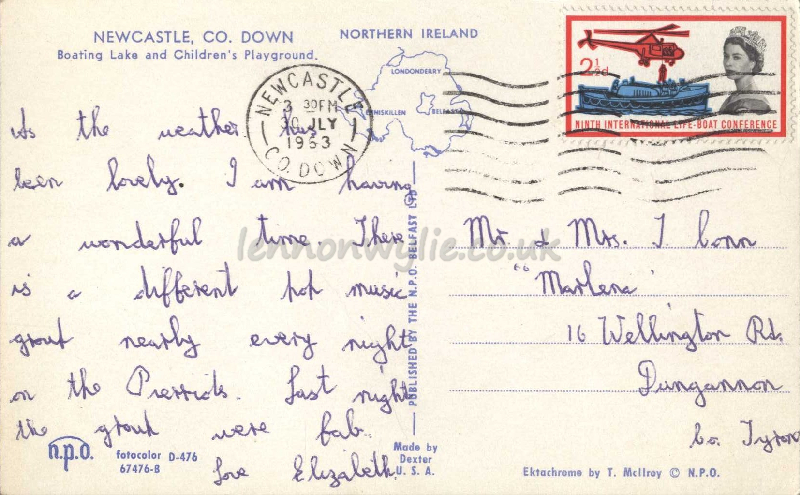 NEWCASTLE, CO. DOWN
Boating Lake and Children's Playground.
NORTHERN IRELAND
LONDONDERRY
ENNISKILLEN
BELFAST
NEWCASTLE
3 30PM
30 JLY
1963
CO. DOWN
2½d
NINTH INTERNATIONAL LIFE-BOAT CONFERENCE
As the weather has
been lovely. I am having
a wonderful time. There
is a different pop music
group nearly every night
on the Pierrids. Last night
the group were fab.
Love Elizabeth.
PUBLISHED BY THE N.P.O. BELFAST LTD
Mr & Mrs. I Conn
"Marlena"
16 Wellington Rd.
Dungannon
Co. Tyrone
n.p.o.
fotocolor D-476
67476-B
Made by
Dexter
U.S.A.
Ektachrome by T. McIlroy © N.P.O.
lennonwylie.co.uk